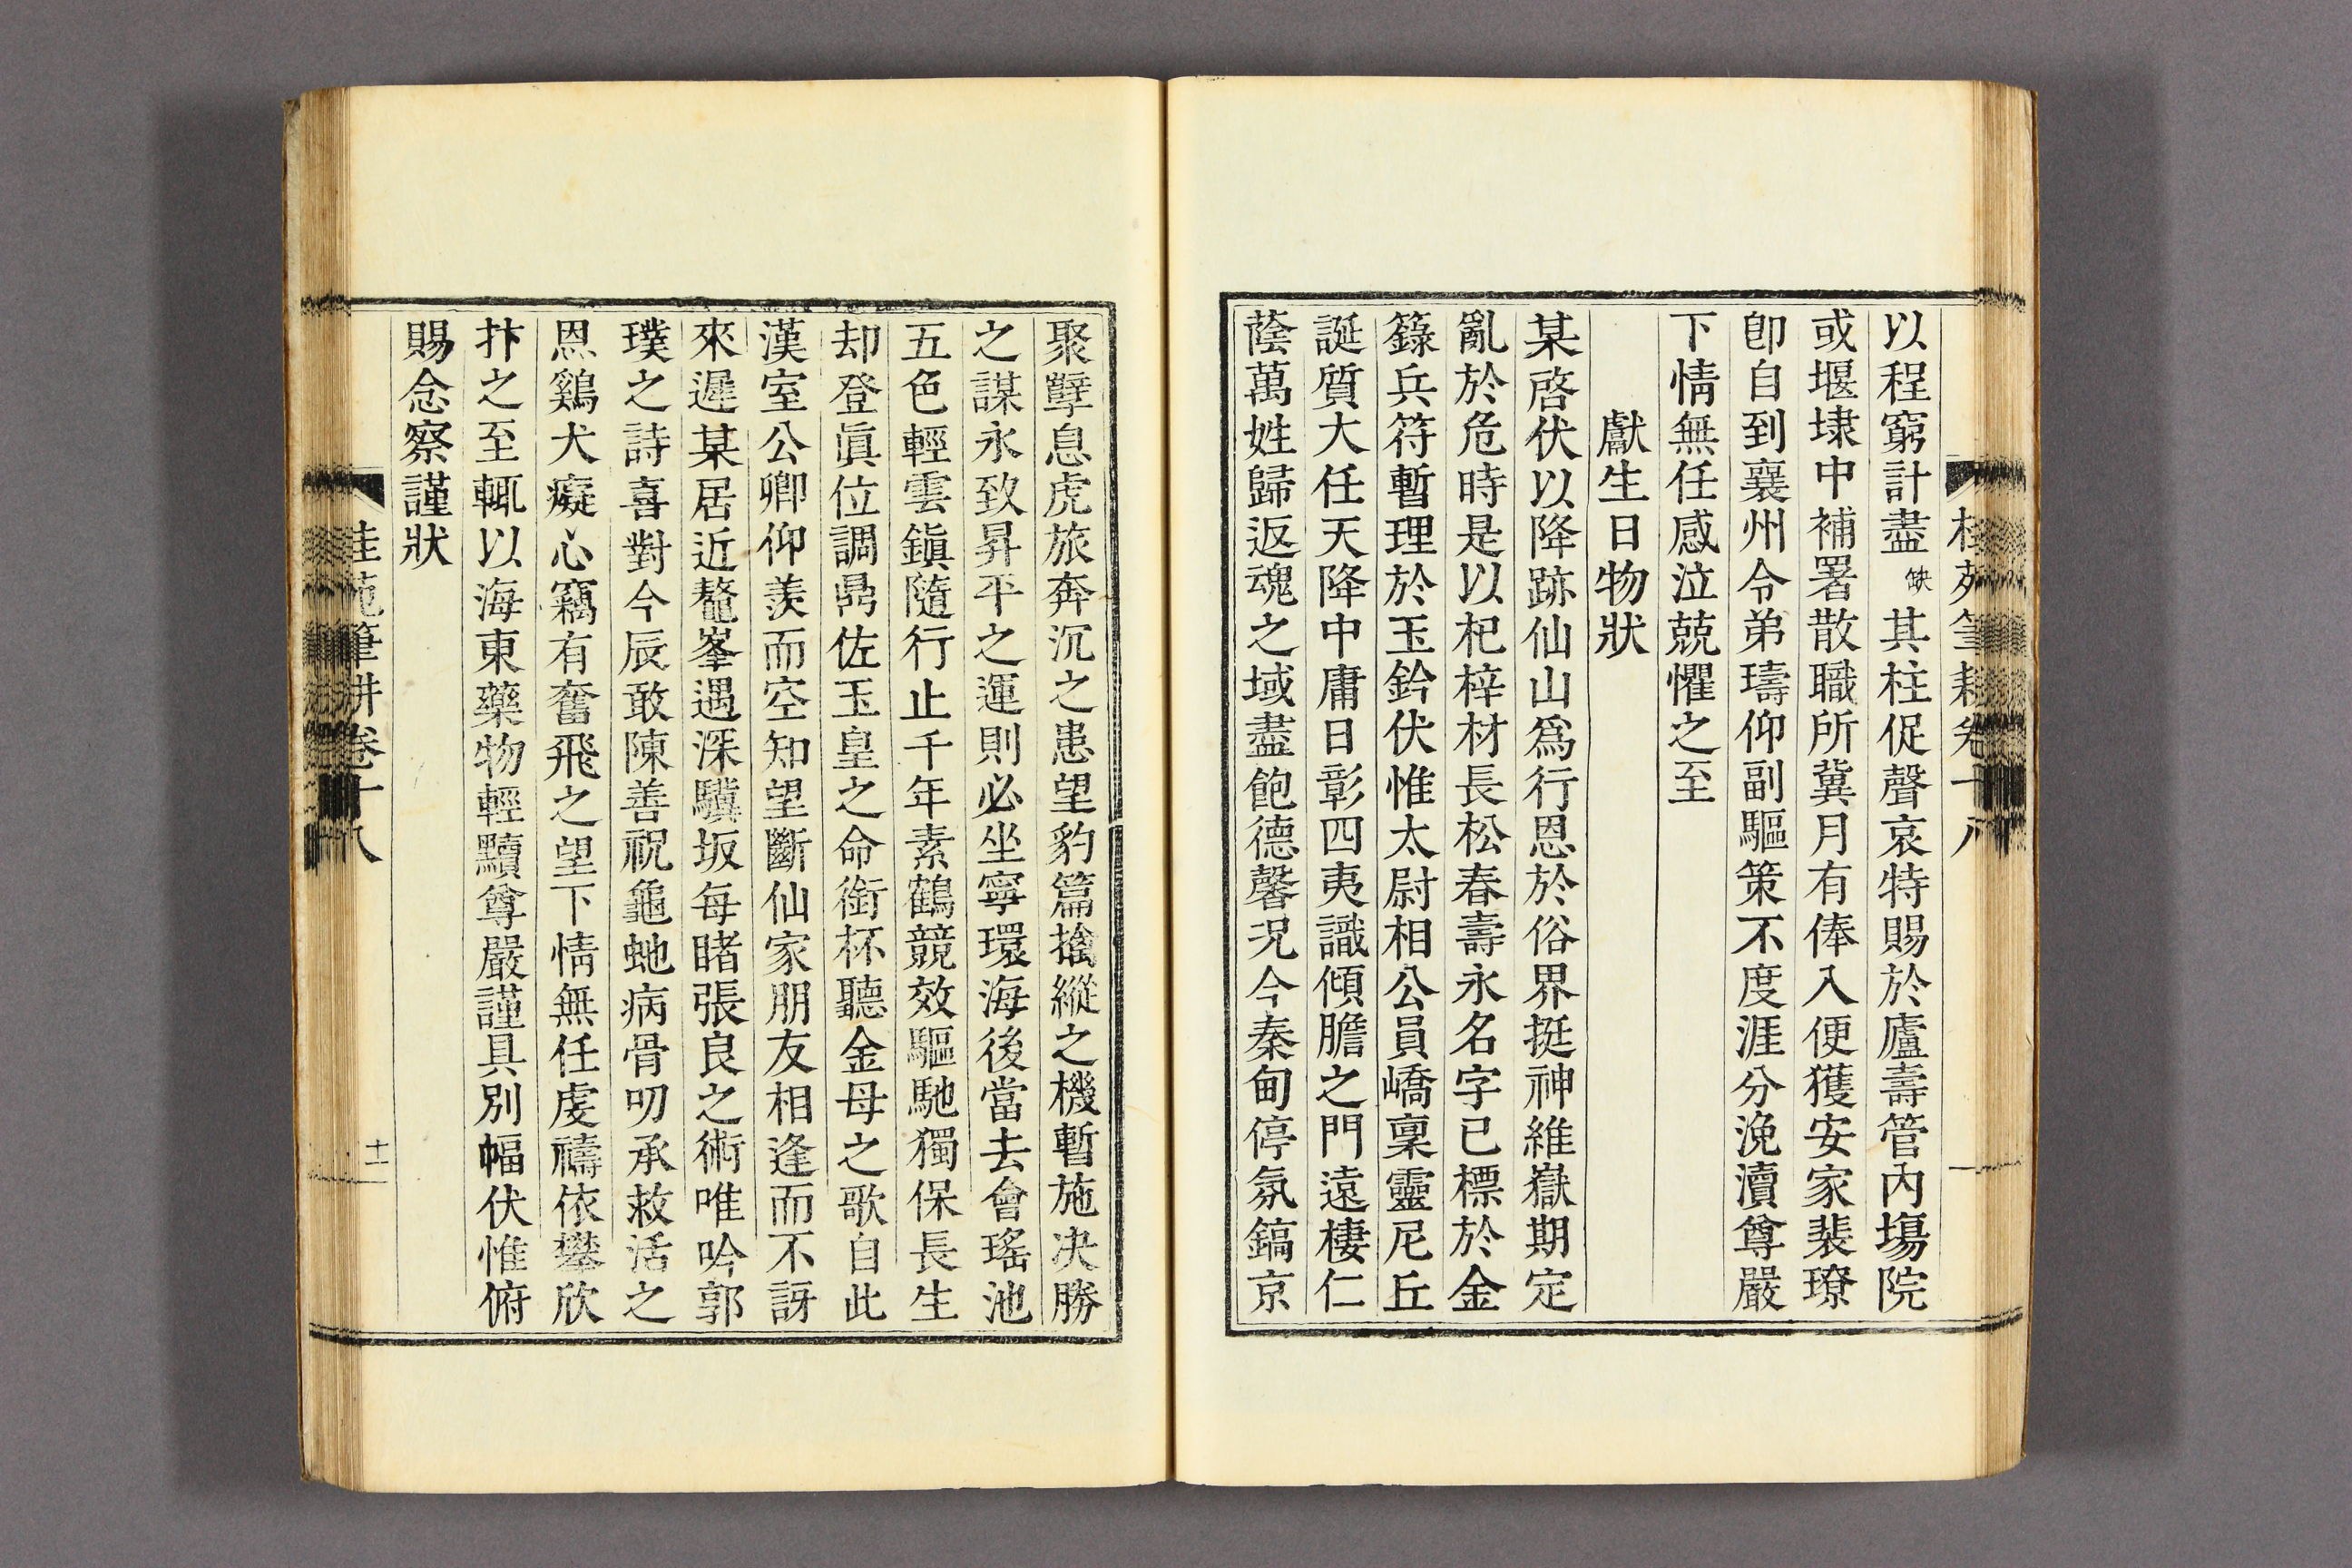 桂苑筆耕卷十八
以程窮計盡缺其柱促聲哀特賜於廬壽管內場院
或堰埭中補署散職所冀月有俸入便獲安家裴璙
卽自到襄州令弟璹仰副驅策不度涯分浼瀆尊嚴
下情無任感泣兢懼之至
獻生日物狀
某啓伏以降跡仙山爲行恩於俗界挺神維嶽期定
亂於危時是以杞梓材長松春壽永名字已標於金
籙兵符暫理於玉鈐伏惟太尉相公員嶠稟靈尼丘
誕質大任天降中庸日彰四夷識傾膽之門遠棲仁
蔭萬姓歸返魂之域盡飽德馨况今秦甸停氛鎬京
聚孼息虎旅奔沉之患望豹篇擒縱之機暫施决勝
之謀永致昇平之運則必坐寧環海後當去會瑤池
五色輕雲鎭隨行止千年素鶴競效驅馳獨保長生
却登眞位調鼎佐玉皇之命銜杯聽金母之歌自此
漢室公卿仰羨而空知望斷仙家朋友相逢而不訝
來遲某居近鼇峯遇深驥坂每睹張良之術唯吟郭
璞之詩喜對今辰敢陳善祝龜虵病骨叨承救活之
恩鷄犬癡心竊有奮飛之望下情無任虔禱依攀欣
抃之至輒以海東藥物輕黷尊嚴謹具別幅伏惟俯
賜念察謹狀
桂苑筆耕卷十八
十一